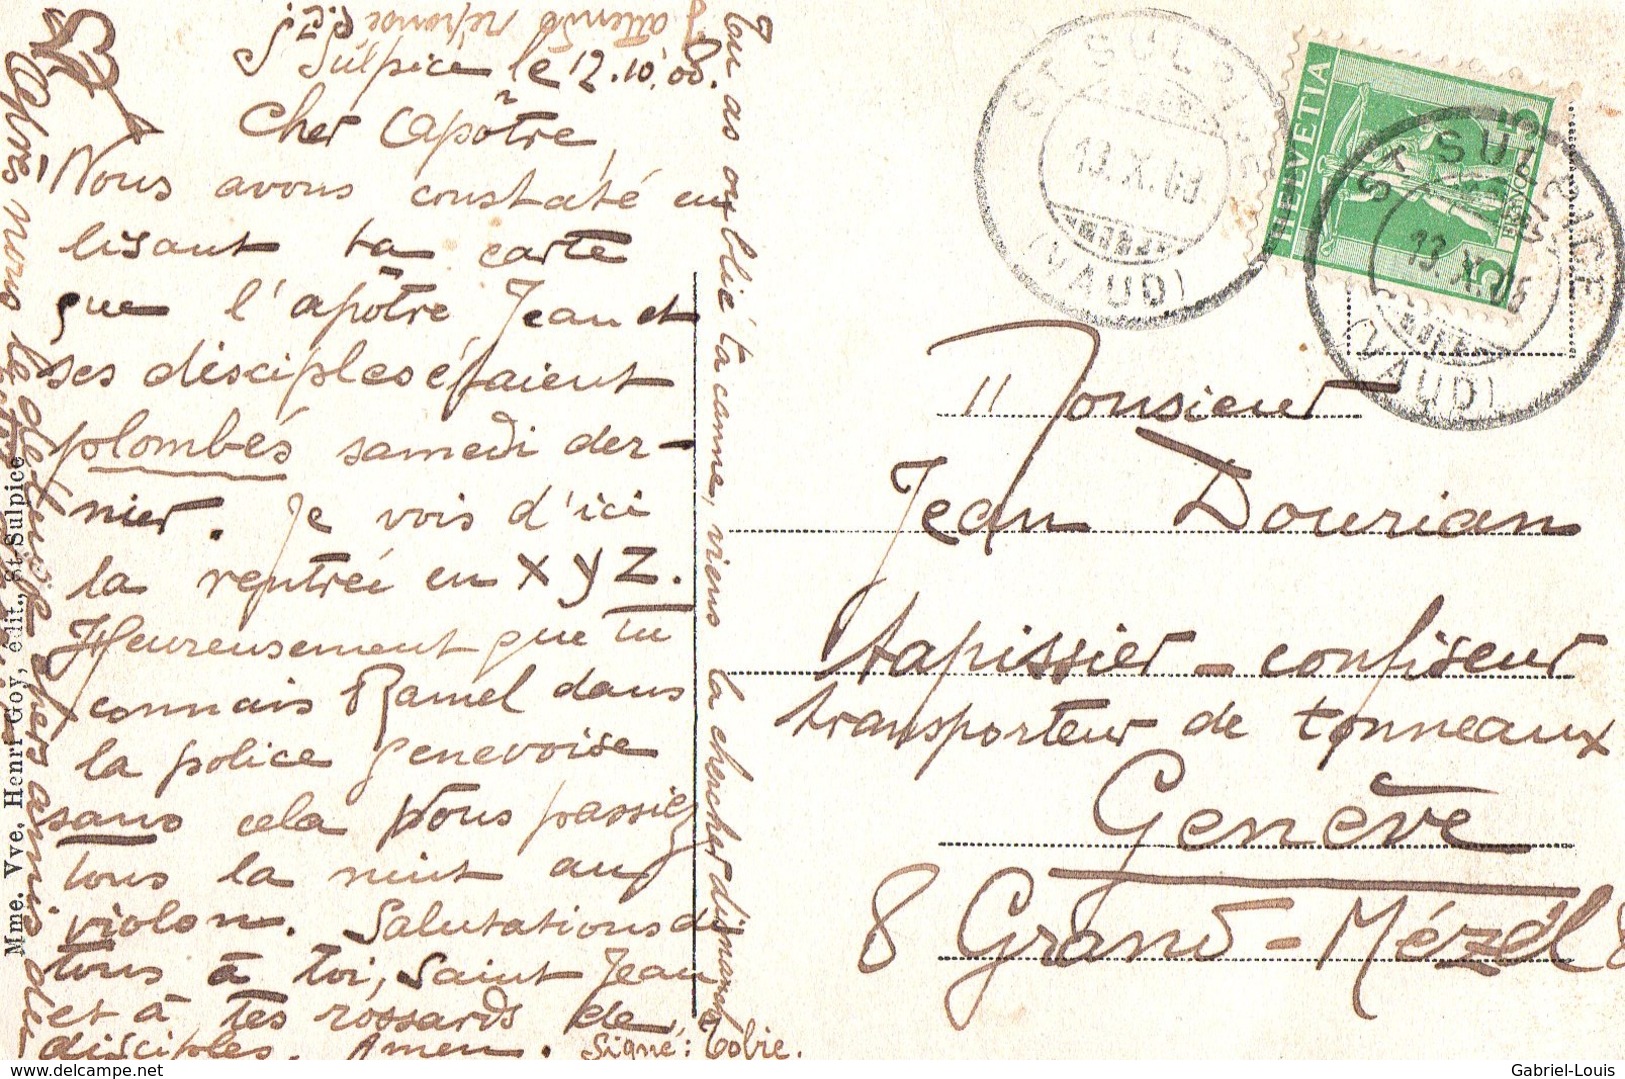 J'attends réponse
St Sulpice le 12.10.08.
Cher Apôtre,
Nous avons constaté en
lisant ta carte
que l'apôtre Jean et
ses disciples étaient
plombés samedi der-
nier. Je vois d'ici
la rentrée en X Y Z.
Heureusement que tu
connais Ramel dans
la police genevoise
sans cela Vous passiez
tous la nuit au
violon. Salutations de
tous à toi, Saint Jean
et à tes rossards de
disciples. Amen. Signé: Tobie.
Tu as oublié ta canne, viens la chercher dimanche
Après nous le déluge chers amis
Mme. Vve. Henri Goy, édit., St-Sulpice
ST SULPICE
13.X.08
(VAUD)
HELVETIA
5 5
ST SULPICE
13.X.08
(VAUD)
Monsieur
Jean Dourian
tapissier - confiseur
transporteur de tonneaux
Genève
8 Grand-Mézel 8
www.delcampe.net
Gabriel-Louis